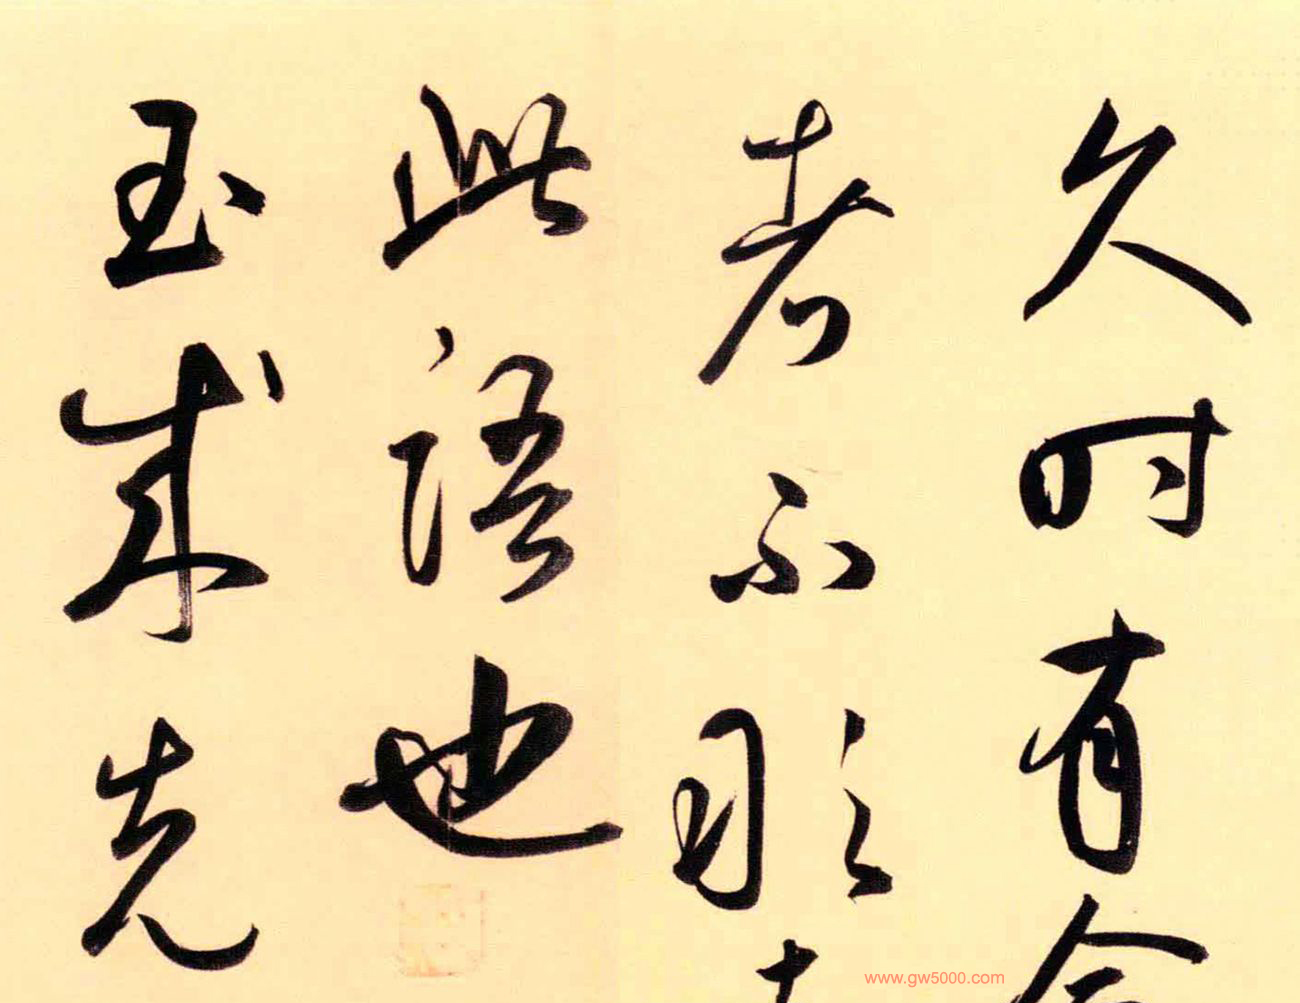 久时有会
者不胜
此语也
玉成先
www.gw5000.com